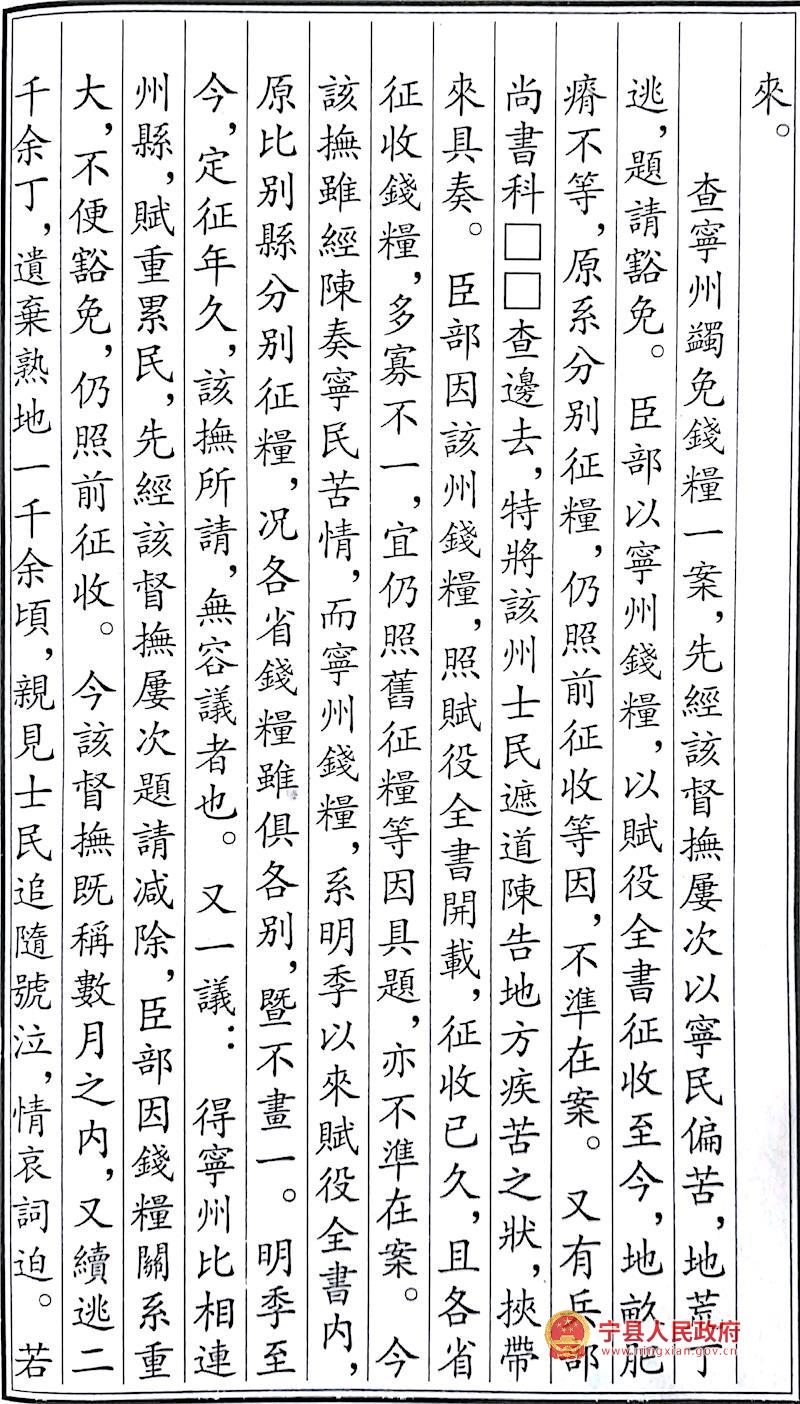 來。
查寧州蠲免錢糧一案，先經該督撫屢次以寧民偏苦，地荒丁
逃，題請豁免。臣部以寧州錢糧，以賦役全書征收至今，地畝肥
瘠不等，原系分别征糧，仍照前征收等因，不準在案。又有兵部
尚書科□□查邊去，特將該州士民遮道陳告地方疾苦之狀，挾帶
來具奏。臣部因該州錢糧，照賦役全書開載，征收已久，且各省
征收錢糧，多寡不一，宜仍照舊征糧等因具題，亦不準在案。今
該撫雖經陳奏寧民苦情，而寧州錢糧，系明季以來賦役全書内，
原比别縣分别征糧，况各省錢糧雖俱各别，暨不畫一。明季至
今，定征年久，該撫所請，無容議者也。又一議：得寧州比相連
州縣，賦重累民，先經該督撫屢次題請減除，臣部因錢糧關系重
大，不便豁免，仍照前征收。今該督撫既稱數月之内，又續逃二
千余丁，遺棄熟地一千余頃，親見士民追隨號泣，情哀詞迫。若
宁县人民政府
www.ningxian.gov.cn